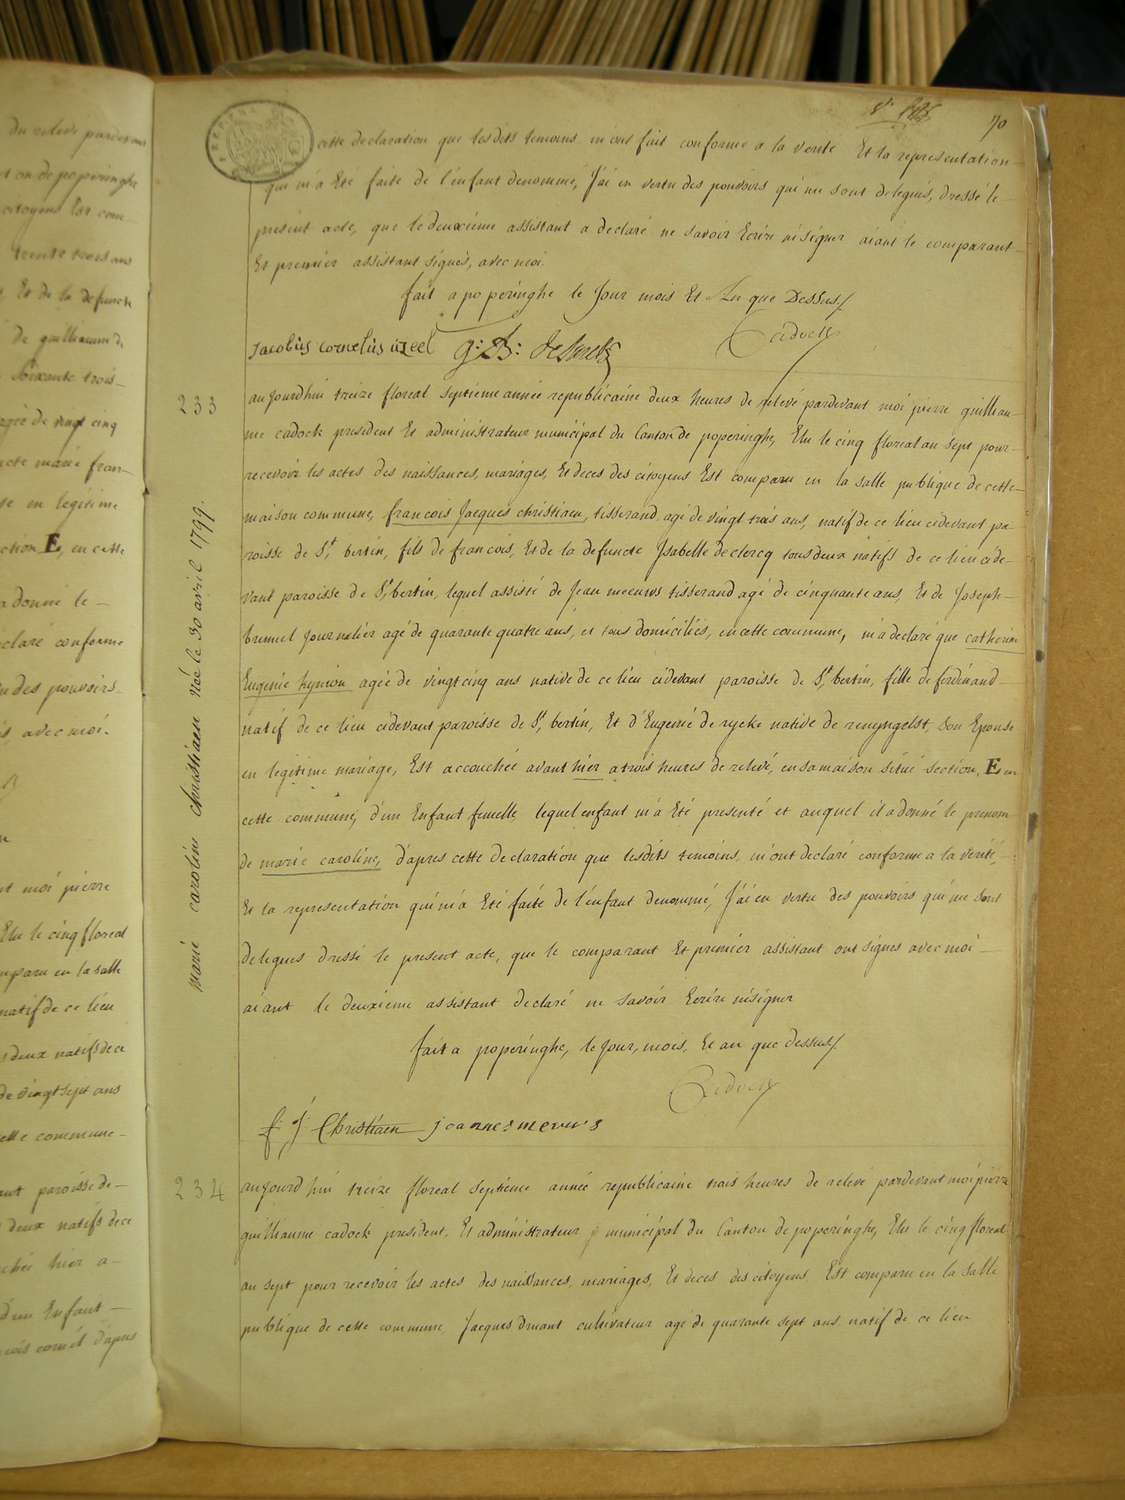 70
cette declaration que lesdits temoins m'ont fait conforme a la verité Et la representation
qui m'a Eté faite de l'enfant denommé, J'ai en vertu des pouvoirs qui me sont delegués, dressé le
present acte, que le deuxième assistant a declaré ne savoir Ecrire ni signer aiant le comparant
Et premier assistant signés, avec moi.
fait a poperinghe le Jour mois Et An que Dessus
Cadock
Jacobus cornelus
g: B: deSmet
233
aujourdhui treize floreal septieme année republicaine deux heures de relevé pardevant moi pierre guillau-
me cadock president Et administrateur municipal du Canton de poperinghe, Elu le cinq floreal an sept pour
recevoir les actes des naissances, mariages, Et deces des citoyens Est comparu en la salle publique de cette
maison commune, francois Jacques christiaen, tisserand agé de vingt trois ans, natif de ce lieu cidevant pa-
roisse de St bertin, fils de francois, Et de la defuncte Isabelle declercq tous deux natifs de ce lieu cide-
vant paroisse de St bertin, lequel assisté de Jean meeuws tisserand agé de cinquante ans, Et de Joseph
bruneel Journalier agé de quarante quatre ans, et tous domiciliés, en cette commune, m'a declaré que catherine
Eugenie hynion agée de vingt cinq ans native de ce lieu cidevant paroisse de St bertin, fille de ferdinand
natif de ce lieu cidevant paroisse de St bertin, Et d'Eugenié de rycke native de renyngelst, son Epouse
en legitime mariage, Est accouchée avant hier a trois heures de relevé, en sa maison situé section, E en
cette commune, d'un Enfant femelle lequel enfant m'a Eté presenté et auquel il a donné le prenom
de marie caroline, d'apres cette declaration que lesdits temoins, m'ont declaré conforme a la verité,
Et la representation qui m'a Eté faite de l'enfant denommé, J'ai en vertu des pouvoirs qui me sont
delegues dressé le present acte, que le comparant Et premier assistant ont signes avec moi
aiant le deuxieme assistant declaré ne savoir Ecrire ni signer
fait a poperinghe, le Jour, mois, Et an que dessus
Cadock
f J Christiaen joannes meeuws
marie caroline christiaen Née le 30 avril 1799.
234
aujourdhui treize floreal septieme année republicaine trois heures de relevé pardevant moi pierre
guillaume cadock president, Et administrateur municipal du Canton de poperinghe, Elu le cinq floreal
an sept pour recevoir les actes des naissances, mariages, Et deces des citoyens Est comparu en la salle
publique de cette commune Jacques cultivateur agé de quarante sept ans natif de ce lieu